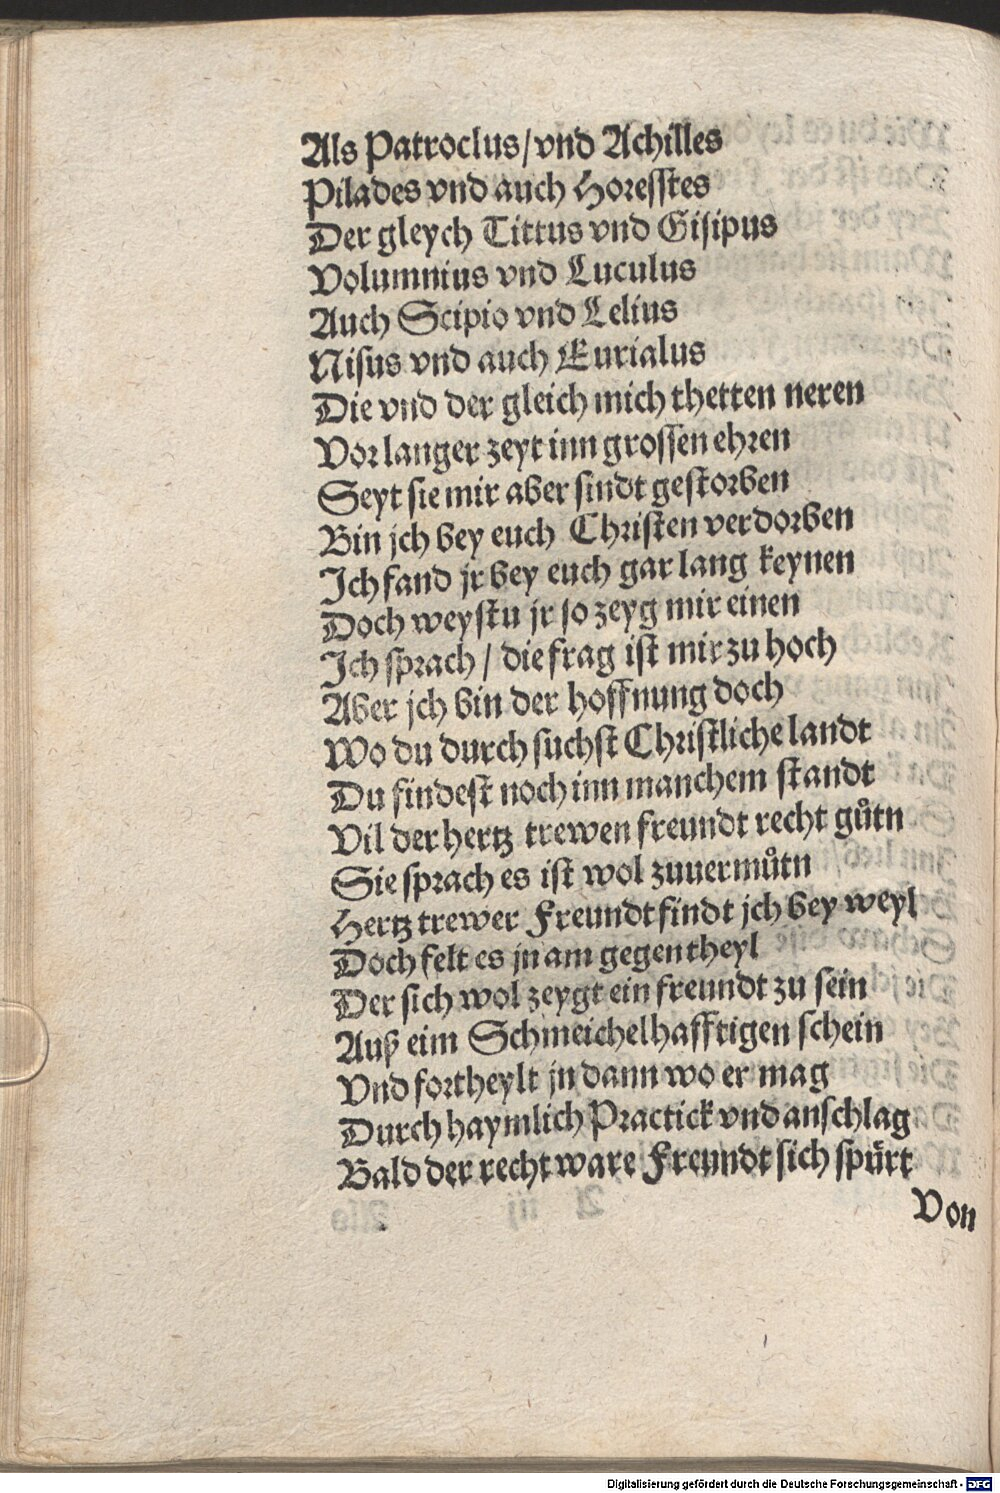 Als Patroclus/vnd Achilles
Pilades vnd auch Horesstes
Der gleych Tittus vnd Gisipus
Volumnius vnd Luculus
Auch Scipio vnd Lelius
Nisus vnd auch Eurialus
Die vnd der gleich mich thetten neren
Vor langer zeyt inn grossen ehren
Seyt sie mir aber sindt gestorben
Bin jch bey euch Christen verdorben
Ich fand jr bey euch gar lang keynen
Doch weystu jr so zeyg mir einen
Ich sprach / die frag ist mir zu hoch
Aber jch bin der hoffnung doch
Wo du durch suchst Christliche landt
Du findest noch inn manchem standt
Vil der hertz trewen freundt recht gůtn
Sie sprach es ist wol zuuermůtn
Hertz trewer Freundt findt jch bey weyl
Doch felt es jn am gegentheyl
Der sich wol zeygt ein freundt zu sein
Auß eim Schmeichelhafftigen schein
Vnd fortheylt jn dann wo er mag
Durch haymlich Practick vnd anschlag
Bald der recht ware Freundt sich spürt
Von
Digitalisierung gefördert durch die Deutsche Forschungsgemeinschaft - DFG